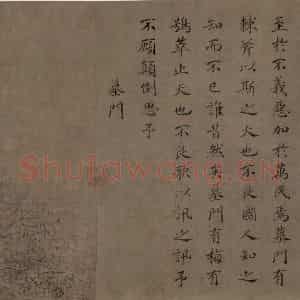 至於不義惡加於萬民焉墓門有
棘斧以斯之夫也不良國人知之
知而不已誰昔然矣墓門有梅有
鴞萃止夫也不良歌以訊之訊予
不顧顛倒思予
墓門
Shufawang.CN